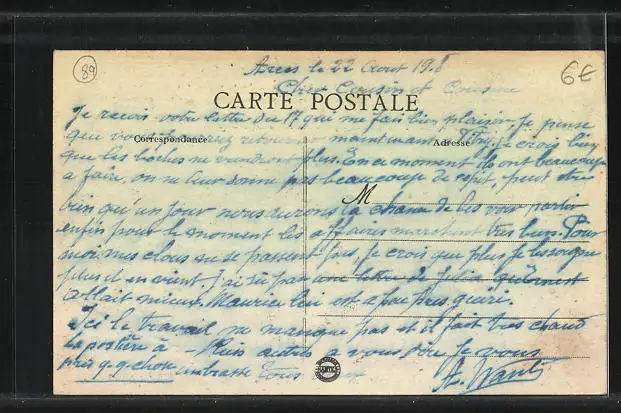 89
6€
Arces le 22 Aout 19.8
Cher Cousin et Cousine
CARTE POSTALE
Correspondance
Adresse
M
Je reçois votre lettre du 17 qui me fais bien plaisir. Je pense
que vous retourner maintenant Je crois bien
que les boches ne viendront plus. En ce moment ils ont beaucoup
a faire, on ne leur donne pas beaucoup de repit, peut etre
bien qu'un jour nous aurons la chance de les voir partir
enfin pour le moment les affaires marchent tres bien. Pour
moi mes clous ne se passent pas, je crois que plus je les soigne
plus il en vient. J'ai su par une lettre de Julia qu'Ernest
allait mieux. Maurice lui est a peu pres gueri.
Ici le travail ne manque pas et il fait tres chaud
la postière a - Puis autres a vous dire je vous
pris q.q. chose embrasse tous
A.